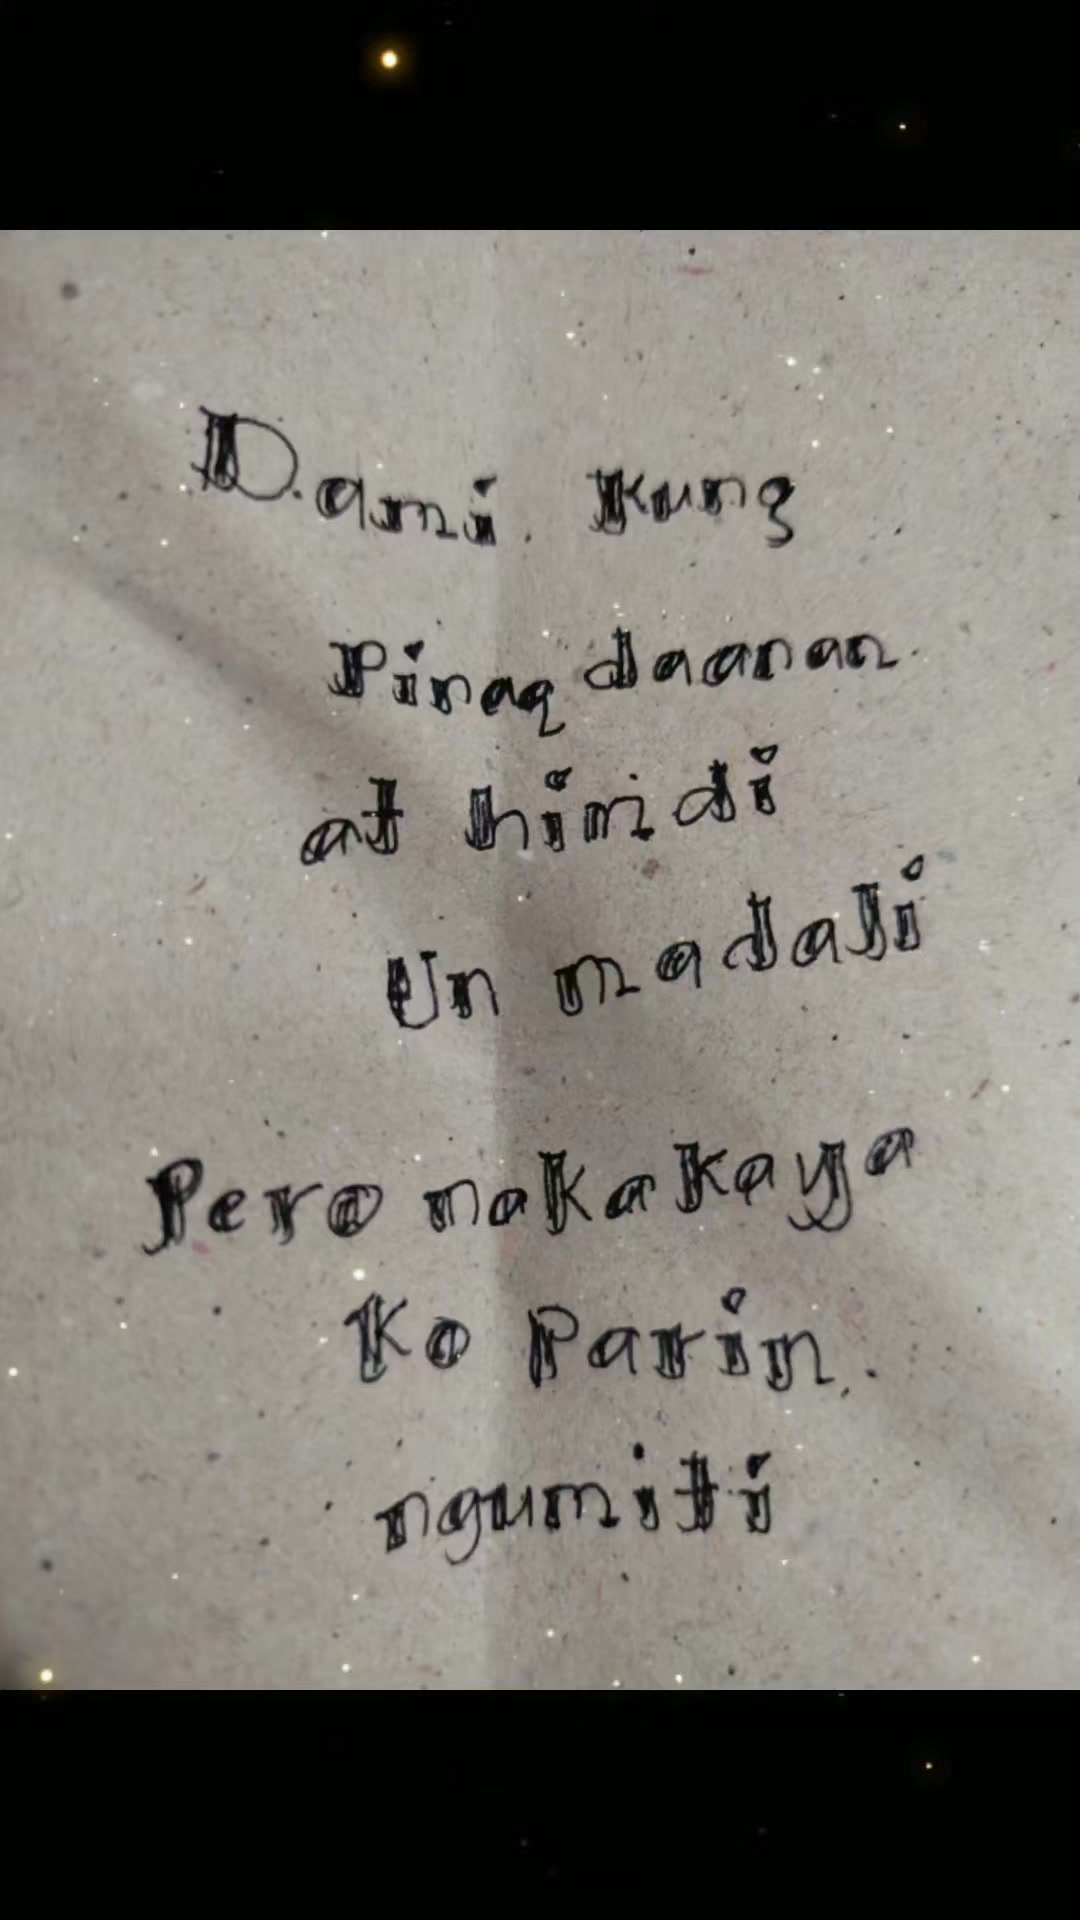 D.ami. kung
Pinag daanan.
at hindi
Un madali
Pero nakakaya
Ko Parin.
ngumiti